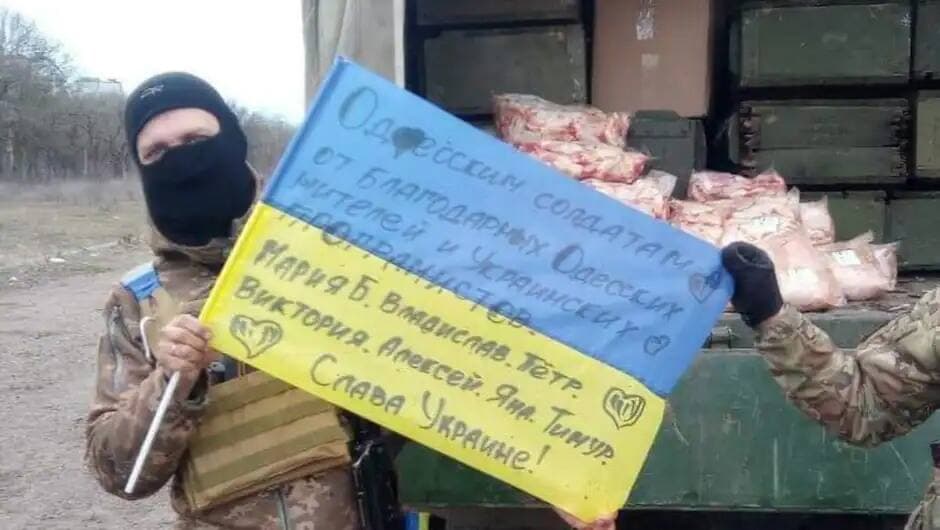 Одесским солдатам
от благодарных Одесских
жителей и Украинских
Мария Б. Владислав. Петр.
Виктория. Алексей. Яна. Тимур.
Слава Украине!